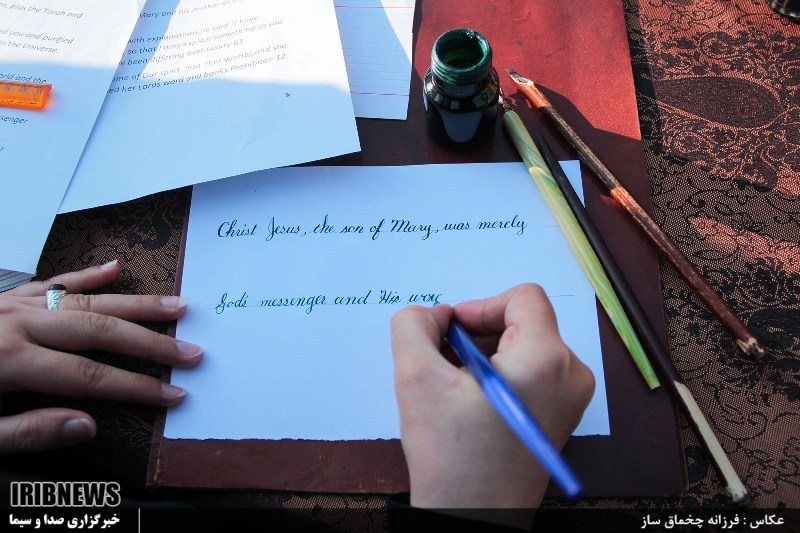 , plus the Torah and
ed you and purified
s the Universe.
orld and the
senger
Mary and his mother as a
with explanations,he said:"I have
so that I may explain something to you
been differing over.luxury 63
me of Our spirit into ther wombi,and she
ed her Lords word and books.Prohibiton 12
Christ Jesus, the son of Mary, was merely
God's messenger and His wor
IRIBNEWS
خبرگزاری صدا و سیما
عکاس : فرزانه چخماق ساز